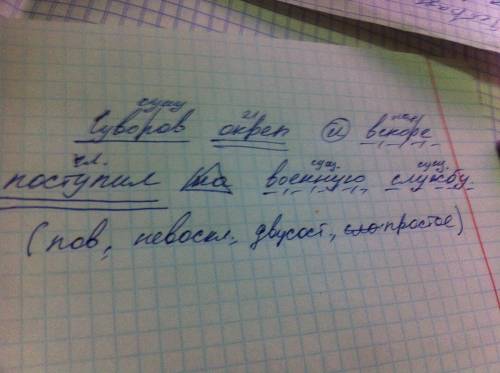 сущ гл нар
Суворов окреп и вскоре
гл. сущ.
поступил на военную службу.
(пов, невоскл, двусост, простое)